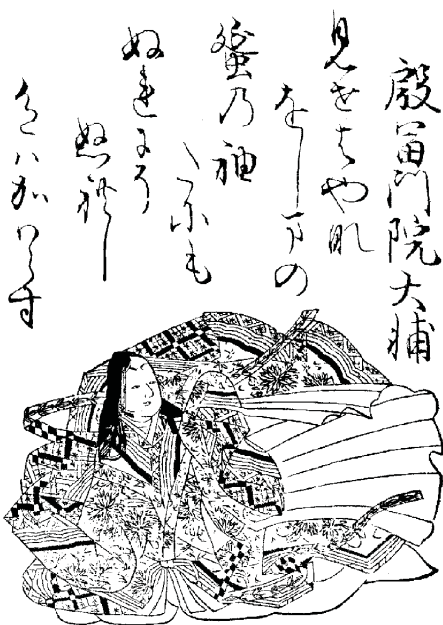 殷富門院大輔
見せはやな
をしまの
蜑乃袖
たにも
ぬれにそ
ぬれし
色ハかはらす